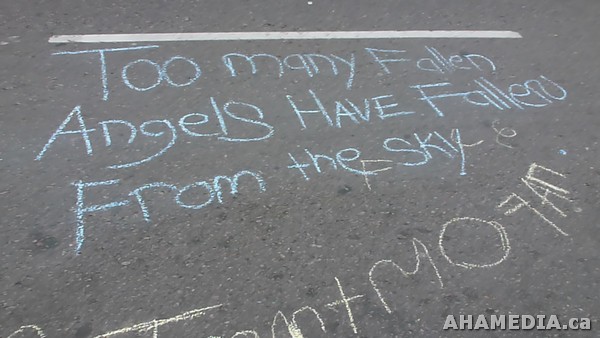 Too many Fallen
Angels HAVE Fallen
From the sky
AHAMEDIA.ca